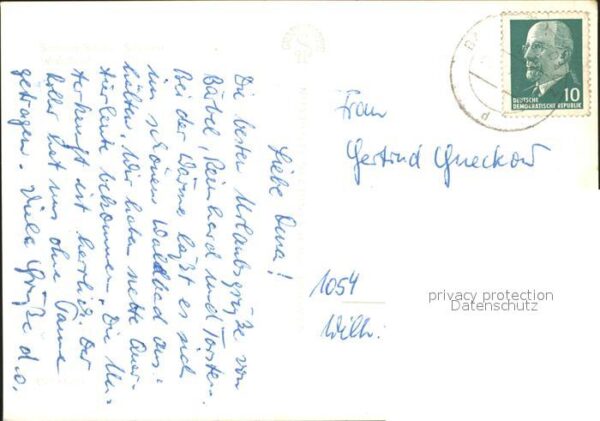 Liebe Oma!
Die besten Urlaubsgrüße von
Bärbel, Reinhard und Torsten.
Bei der Wärme läßt es sich
im schönen Waldbad aus-
halten. Wir haben nette Quar-
tierleute bekommen. Die Un-
terkunft ist herrlich. Der
Roller hat uns ohne Panne
getragen. Viele Grüße d. o.
Frau
Gertrud Gneckow
1054
Wilh:
DEUTSCHE
DEMOKRATISCHE REPUBLIK
10
privacy protection
Datenschutz